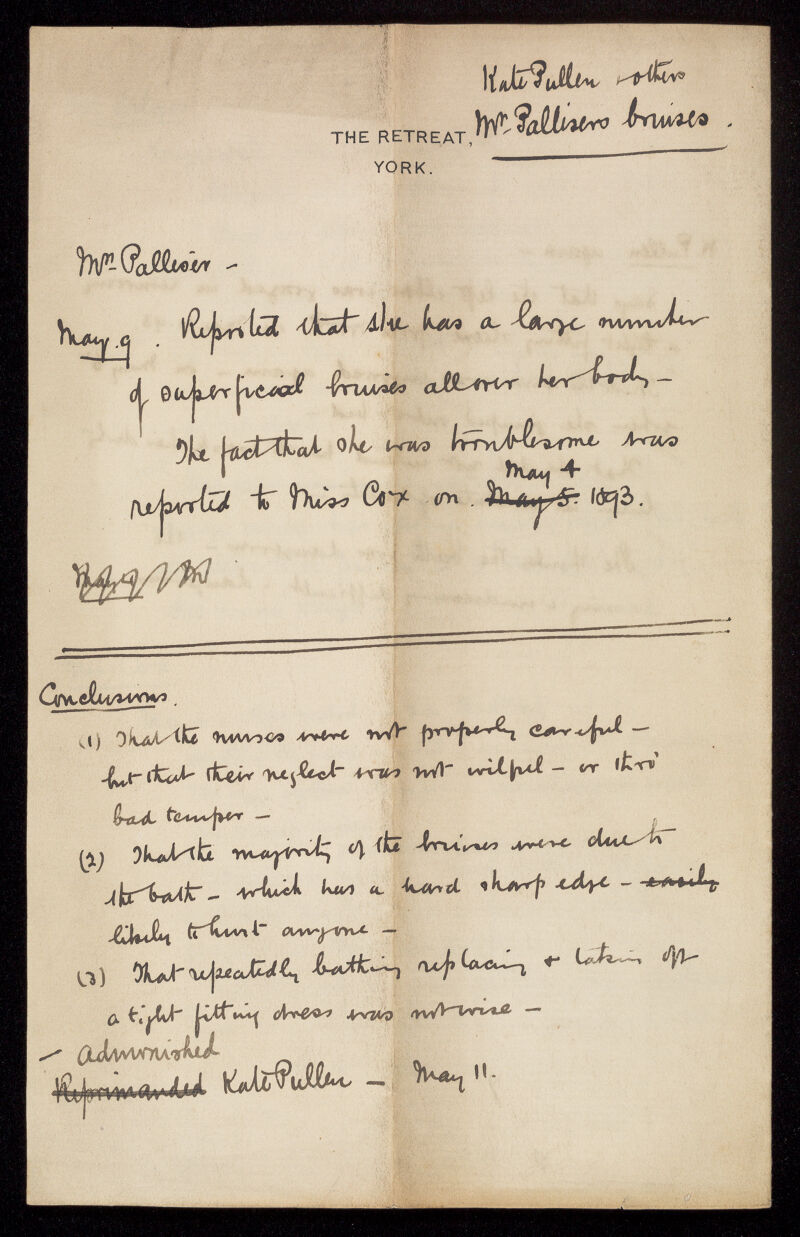 Kate Pullen & others
Mrs. Pallisers bruises.
THE RETREAT,
YORK.
Mrs. Palliser –
May. 9. Reported that she has a large number
of superficial bruises all over her body –
The fact that she was troublesome was
May 4
reported to Miss Cox on May 5. 1893.
May 9
Conclusions.
(1) That the nurses were not properly careful –
but that their neglect was not wilful – or thro'
bad temper –
(2) That the majority of the bruises were due to
the bath – which has a hard sharp edge – easily
likely to hurt anyone –
(3) That repeatedly bathing replacing & taking off
a tight fitting dress was not wise –
– Admonished
Reprimanded Kate Pullen – May 11.